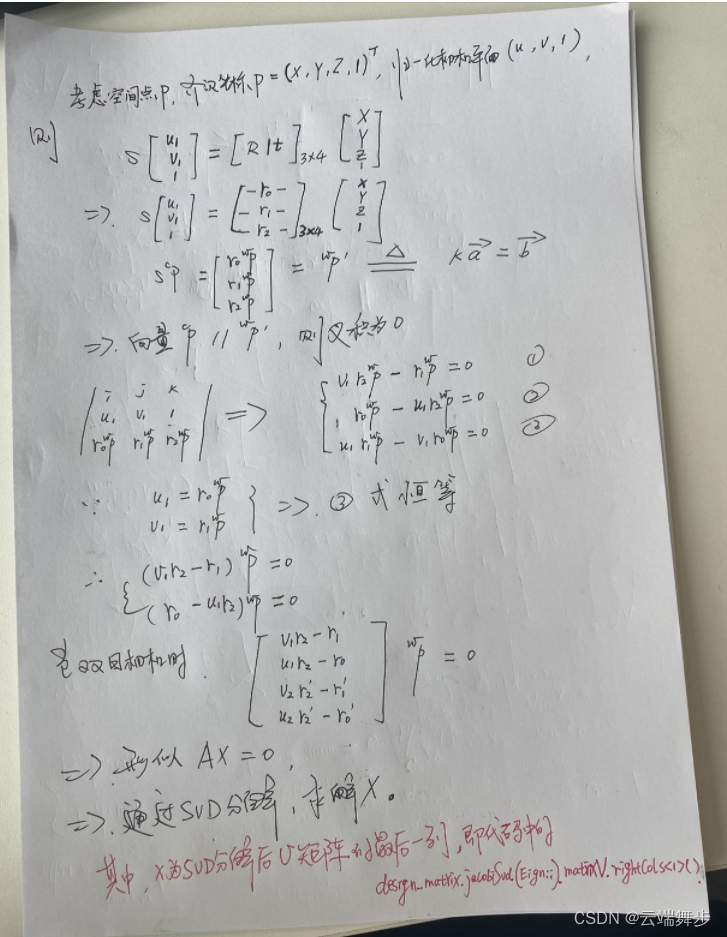 考虑空间点P, 齐次坐标P=(X,Y,Z,1)ᵀ, 归一化相机平面(u,v,1),
则 s[u₁ v₁ 1] = [R|t]₃ₓ₄ [X Y Z 1]
=>. s[u₁ v₁ 1] = [-r₀- -r₁- -r₂-]₃ₓ₄ [X Y Z 1]
sᶜp = [r₀ʷp r₁ʷp r₂ʷp] = ʷp' ≜ k a⃗ = b⃗
=>. 向量ᶜp // ʷp', 则叉积为0
|i j k|
|u₁ v₁ 1| => { v₁r₂ʷp - r₁ʷp = 0 ①
|r₀ʷp r₁ʷp r₂ʷp| r₀ʷp - u₁r₂ʷp = 0 ②
u₁r₁ʷp - v₁r₀ʷp = 0 ③
∵ u₁ = r₀ʷp
v₁ = r₁ʷp } =>. ③式恒等
∴ { (v₁r₂-r₁)ʷp = 0
(r₀-u₁r₂)ʷp = 0
当双目相机时. [v₁r₂-r₁
u₁r₂-r₀
v₂r₂'-r₁'
u₂r₂'-r₀'] ʷp = 0
=>. 形似 AX=0,
=>. 通过SVD分解, 求解X。
其中, X为SVD分解后V矩阵的最后一列, 即代码中的
design_matrix.jacobiSvd(Eign::).matrixV.rightCols<1>().
CSDN @云端舞步